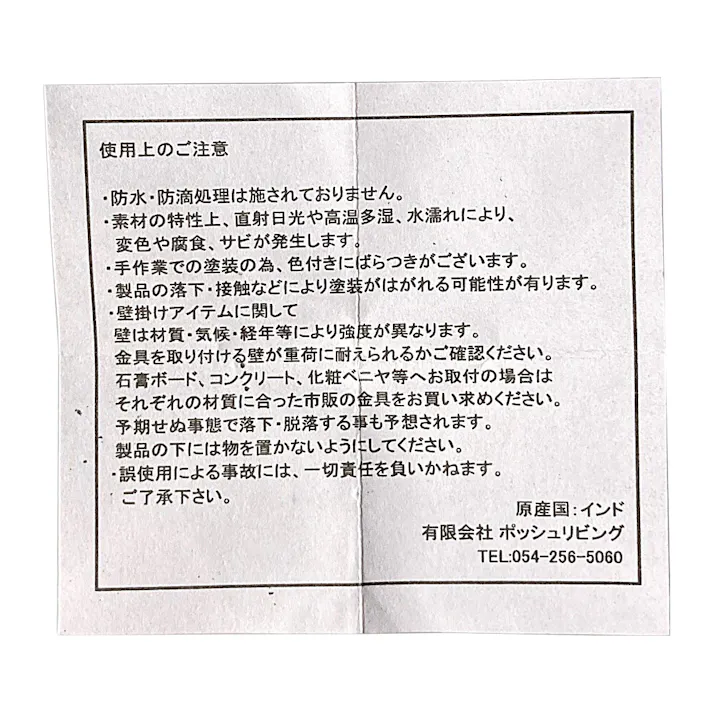 使用上のご注意
・防水・防滴処理は施されておりません。
・素材の特性上、直射日光や高温多湿、水濡れにより、
変色や腐食、サビが発生します。
・手作業での塗装の為、色付きにばらつきがございます。
・製品の落下・接触などにより塗装がはがれる可能性が有ります。
・壁掛けアイテムに関して
壁は材質・気候・経年等により強度が異なります。
金具を取り付ける壁が重荷に耐えられるかご確認ください。
石膏ボード、コンクリート、化粧ベニヤ等へお取付の場合は
それぞれの材質に合った市販の金具をお買い求めください。
予期せぬ事態で落下・脱落する事も予想されます。
製品の下には物を置かないようにしてください。
・誤使用による事故には、一切責任を負いかねます。
ご了承下さい。
原産国：インド
有限会社 ポッシュリビング
TEL:054-256-5060